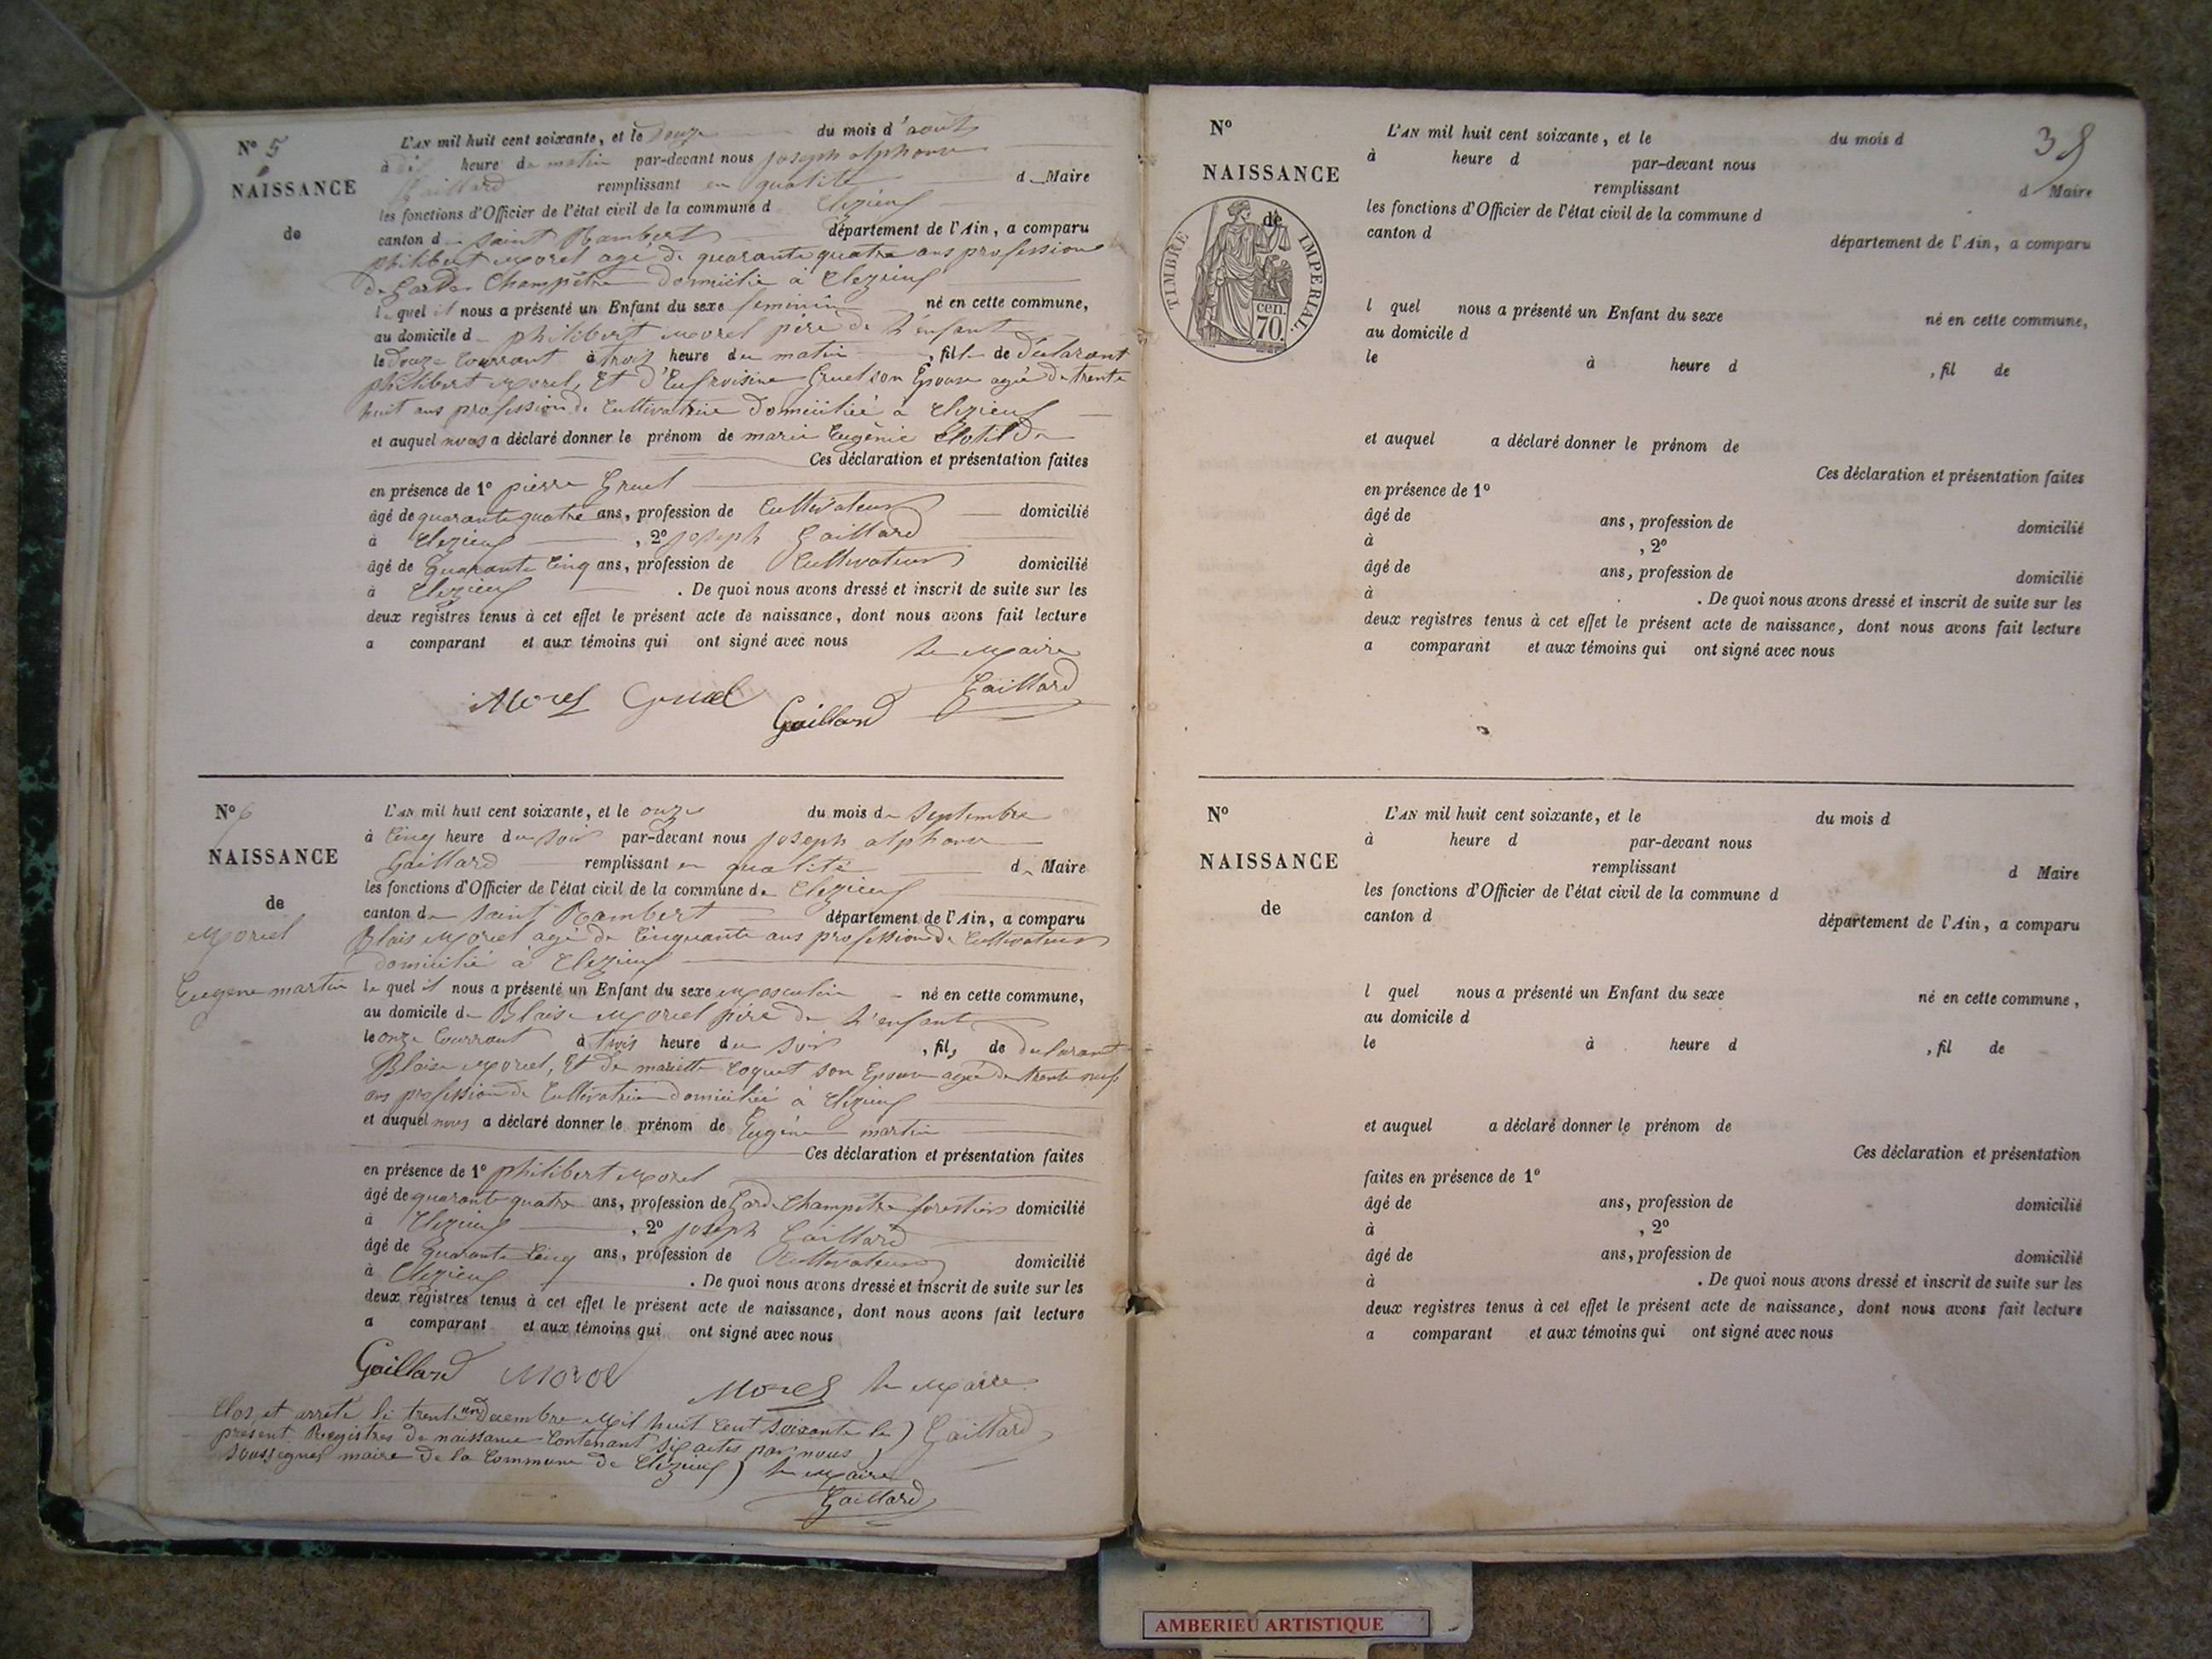 N° 5
NAISSANCE
de
L'AN mil huit cent soixante, et le douze du mois d'août
à heure du matin par-devant nous joseph alphonse
Gaillard remplissant en qualité d Maire
les fonctions d'Officier de l'état civil de la commune d Clezieux
canton de Saint Rambert département de l'Ain, a comparu
philibert Morel agé de quarante quatre ans profession
de Garde Champêtre domicilié à Clezieux
le quel il nous a présenté un Enfant du sexe feminin né en cette commune,
au domicile de philibert Morel père de l'enfant
le douze Courrant à trois heure du matin, fille de déclarant
philibert Morel, Et d'Eufroisine Gruel son Epouse agée de trente
huit ans profession de Cultivatrice domiciliée à Clezieux
et auquel nous a déclaré donner le prénom de marie Eugénie Clotilde
Ces déclaration et présentation faites
en présence de 1° pierre Gruel
âgé de quarante quatre ans, profession de Cultivateur domicilié
à Clezieux, 2° joseph Gaillard
âgé de Quarante Cinq ans, profession de Cultivateur domicilié
à Clezieux . De quoi nous avons dressé et inscrit de suite sur les
deux registres tenus à cet effet le présent acte de naissance, dont nous avons fait lecture
a comparant et aux témoins qui ont signé avec nous
Le Maire
Morel Gruel Gaillard Gaillard
N° 6
NAISSANCE
de
Morel
Eugene martin
L'AN mil huit cent soixante, et le onze du mois de Septembre
à Cinq heure du soir par-devant nous joseph alphonse
Gaillard remplissant en qualité de Maire
les fonctions d'Officier de l'état civil de la commune de Clezieux
canton de Saint Rambert département de l'Ain, a comparu
Blais Morel agé de Cinquante ans profession de Cultivateur
domicilié à Clezieux
le quel il nous a présenté un Enfant du sexe Masculin né en cette commune,
au domicile de Blaise Morel père de l'enfant
le onze Courrant à trois heure du soir, fils de déclarant
Blaise Morel, Et de mariette Coquet son Epouse agée de trente neuf
ans profession de Cultivatrice domiciliée à Clezieux
et auquel nous a déclaré donner le prénom de Eugène martin
Ces déclaration et présentation faites
en présence de 1° philibert Morel
âgé de quarante quatre ans, profession de Garde Champêtre forestier domicilié
à Clezieux, 2° joseph Gaillard
âgé de Quarante Cinq ans, profession de Cultivateur domicilié
à Clezieux . De quoi nous avons dressé et inscrit de suite sur les
deux registres tenus à cet effet le présent acte de naissance, dont nous avons fait lecture
a comparant et aux témoins qui ont signé avec nous
Gaillard Morel Morel Le Maire
Gaillard
Clos et arrêté le trente un decembre Mil huit Cent Soixante le
présent Registres de naissance Contenant six actes par nous
Soussignés maire de la Commune de Clézieux Le Maire
Gaillard
38
N°
NAISSANCE
de
TIMBRE IMPERIAL.
cen.
70.
L'AN mil huit cent soixante, et le du mois d
à heure d par-devant nous
remplissant d Maire
les fonctions d'Officier de l'état civil de la commune d
canton d département de l'Ain, a comparu
l quel nous a présenté un Enfant du sexe né en cette commune,
au domicile d
le à heure d , fil de
et auquel a déclaré donner le prénom de
Ces déclaration et présentation faites
en présence de 1°
âgé de ans, profession de domicilié
à , 2°
âgé de ans, profession de domicilié
à . De quoi nous avons dressé et inscrit de suite sur les
deux registres tenus à cet effet le présent acte de naissance, dont nous avons fait lecture
a comparant et aux témoins qui ont signé avec nous
N°
NAISSANCE
de
L'AN mil huit cent soixante, et le du mois d
à heure d par-devant nous
remplissant d Maire
les fonctions d'Officier de l'état civil de la commune d
canton d département de l'Ain, a comparu
l quel nous a présenté un Enfant du sexe né en cette commune,
au domicile d
le à heure d , fil de
et auquel a déclaré donner le prénom de
Ces déclaration et présentation
faites en présence de 1°
âgé de ans, profession de domicilié
à , 2°
âgé de ans, profession de domicilié
à . De quoi nous avons dressé et inscrit de suite sur les
deux registres tenus à cet effet le présent acte de naissance, dont nous avons fait lecture
a comparant et aux témoins qui ont signé avec nous
AMBERIEU ARTISTIQUE